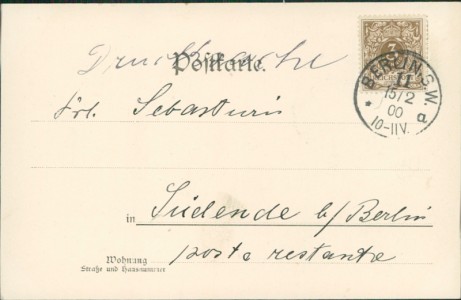 Drucksache
Postkarte.
Frl. Sebasturis
in Südende b/ Berlin
poste restante
Wohnung
Straße und Hausnummer
3
BERLIN, S.W.
11
15/2
00
10-11V.
* d